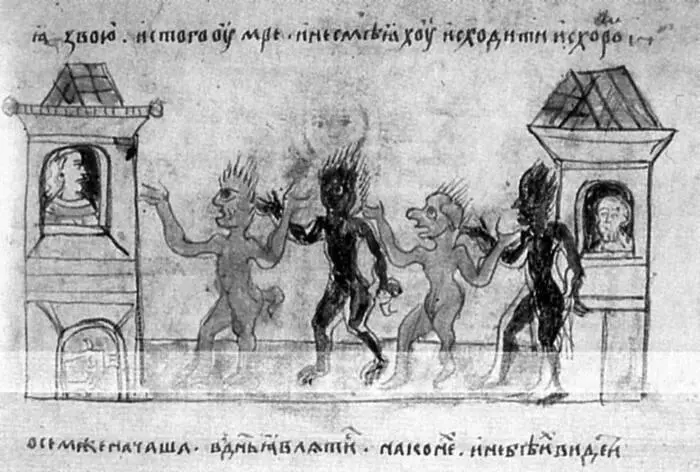 ꙗзвою · истого оумре · инесмѣꙗхоу исходити исхоро
осемженачаша · вднь ꙗвлѧти · наконе · инебѣ видѣти